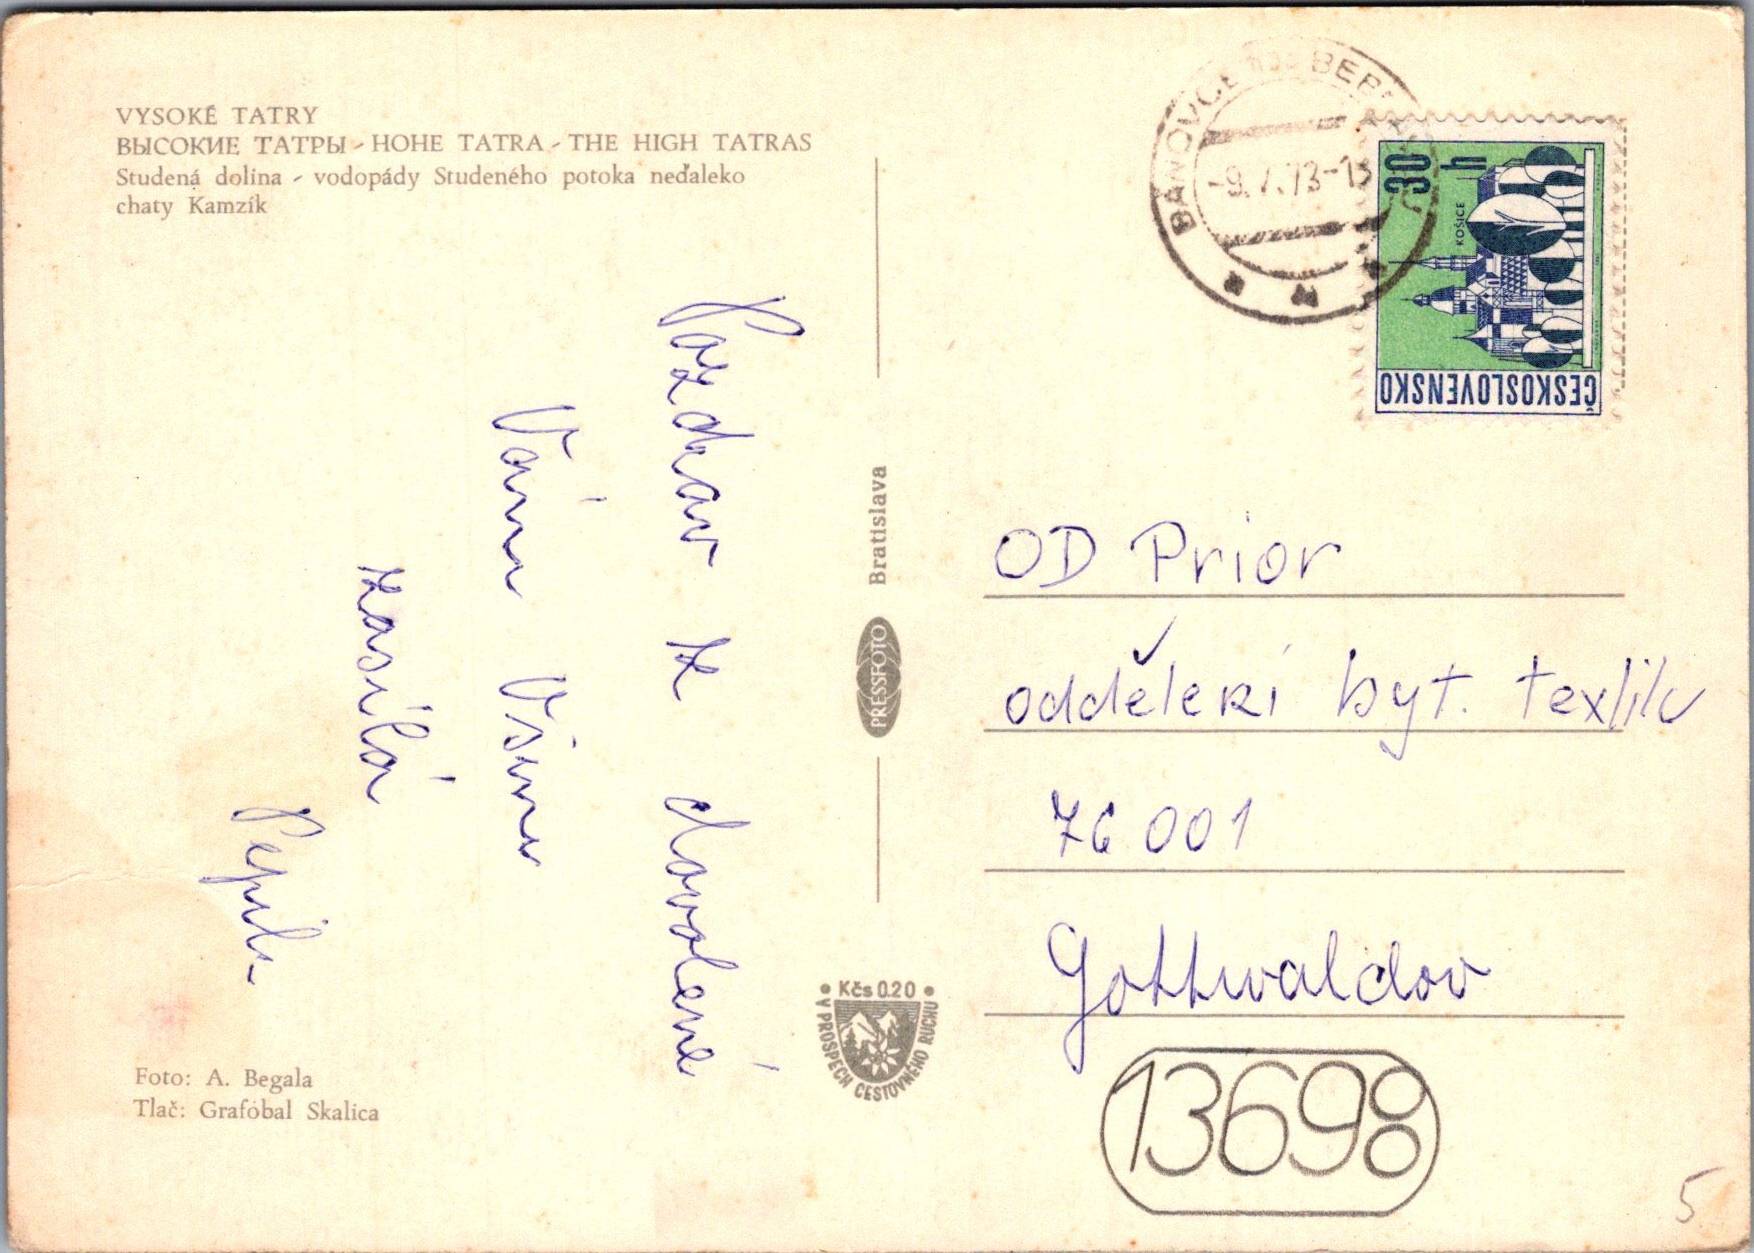 VYSOKÉ TATRY
ВЫСОКИЕ ТАТРЫ - HOHE TATRA - THE HIGH TATRAS
Studená dolina - vodopády Studeného potoka neďaleko
chaty Kamzík
Pozdrav z dovolené
Vám Všem
zasílá
Foto: A. Begala
Tlač: Grafobal Skalica
PRESSFOTO Bratislava
Kčs 0.20
V PROSPECH CESTOVNÉHO RUCHU
BÁNOVCE
30 h
KOŠICE
ČESKOSLOVENSKO
OD Prior
oddělení byt. textilu
76 001
Gottwaldov
1369
5